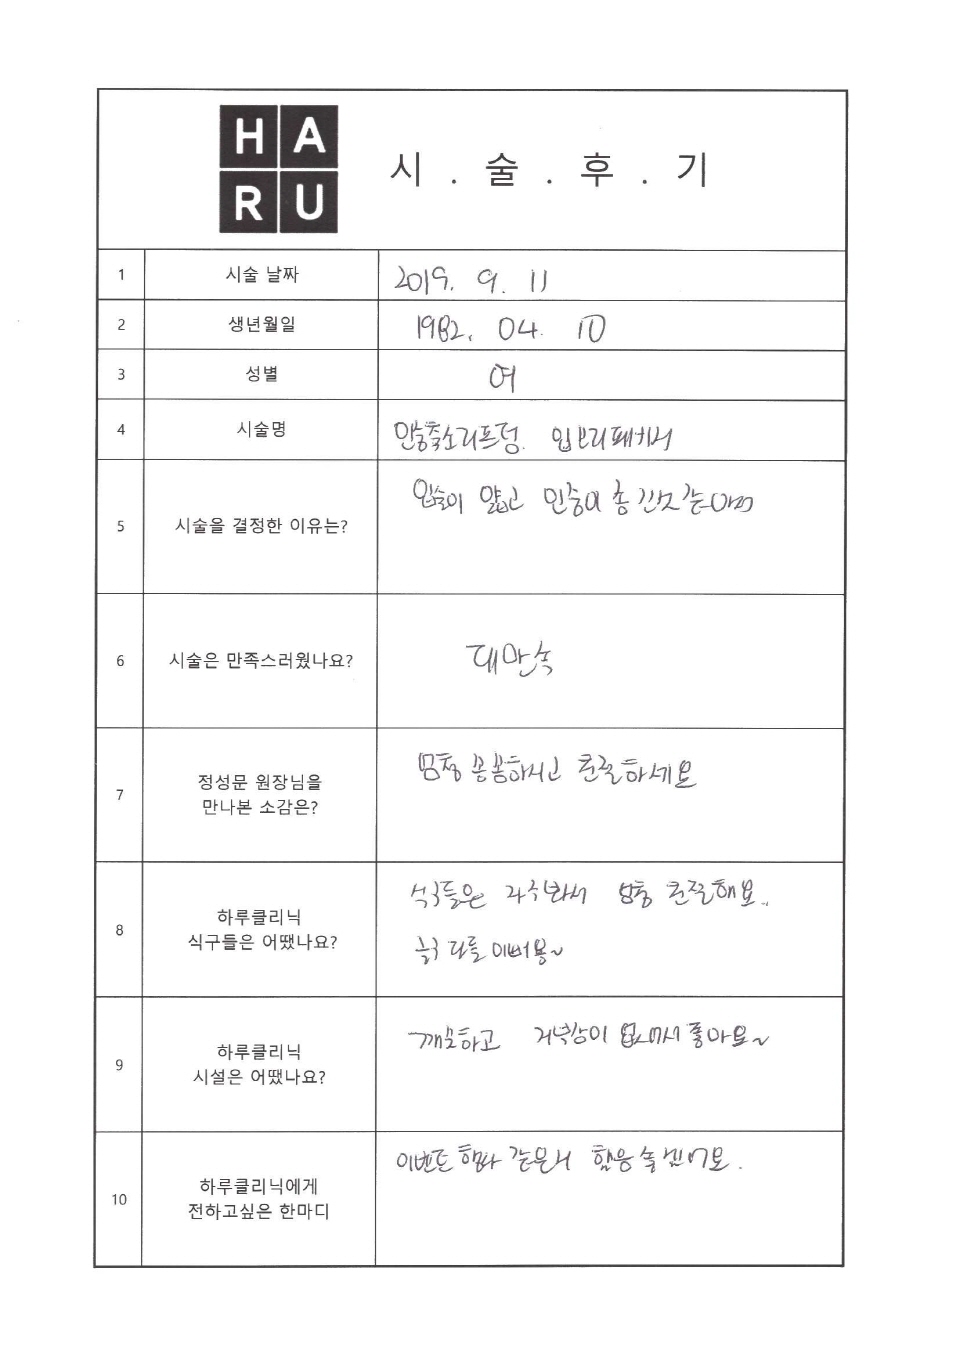 HA
RU
시 . 술 . 후 . 기
1 시술 날짜 2019. 9. 11
2 생년월일 1982. 04. 10
3 성별 여
4 시술명 인중축소리프팅. 입꼬리
5 시술을 결정한 이유는? 입술이 얇고 인중이 긴것 같아서
6 시술은 만족스러웠나요? 대만족
7 정성문 원장님을
만나본 소감은? 엄청 꼼꼼하시고 친절하세요
8 하루클리닉
식구들은 어땠나요? 식구들은 자주봐서 엄청 친절해요..
다들 이뻐용~
9 하루클리닉
시설은 어땠나요? 깨끗하고 거부감이 없어서 좋아요~
10 하루클리닉에게
전하고싶은 한마디 이벤트